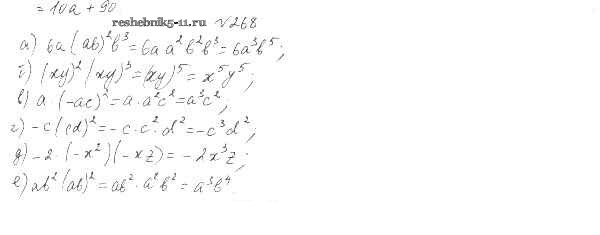 = 10a + 90
reshebnik5-11.ru √268
а) 6a(ab)²b³ = 6a a²b²b³ = 6a³b⁵;
б) (xy)²(xy)³ = (xy)⁵ = x⁵y⁵;
в) a·(-ac)² = a·a²c² = a³c²,
г) -c(cd)² = -c·c²·d² = -c³d²;
д) -2·(-x²)(-xz) = -2x³z;
е) ab²(ab)² = ab²·a²b² = a³b⁴.